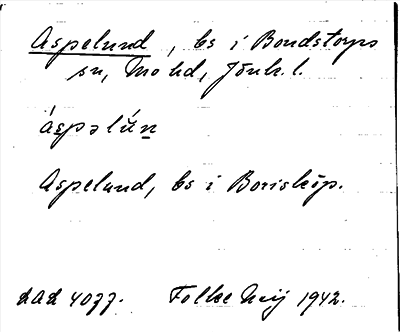 Aspelund, bs i Bondstorps
sn, Mo hd, Jönk. l.
áspəlún
Aspelund, bs i Boriskóp.
LAL 4077. Folke Meij 1942.